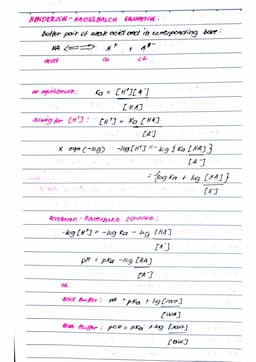 HENDERSON - HASSELBALCH EQUATION:
buffer pair of weak acid and its corresponding base:
HA <=> H+ + A-
acid cb
at equilibrium: Ka = [H+][A-]
[HA]
solving for [H+]: [H+] = Ka [HA]
[A-]
x eqn (-log) -log[H+] = -log { Ka [HA] }
[A-]
= {log Ka + log [HA] }
[A-]
Henderson - Hasselbalch Equation:
-log [H+] = -log Ka - log [HA]
[A-]
pH = pKa - log [HA]
[A-]
or
Acid Buffer: pH = pKa + log [salt]
[WA]
Base Buffer: pOH = pKb + log [salt]
[WB]